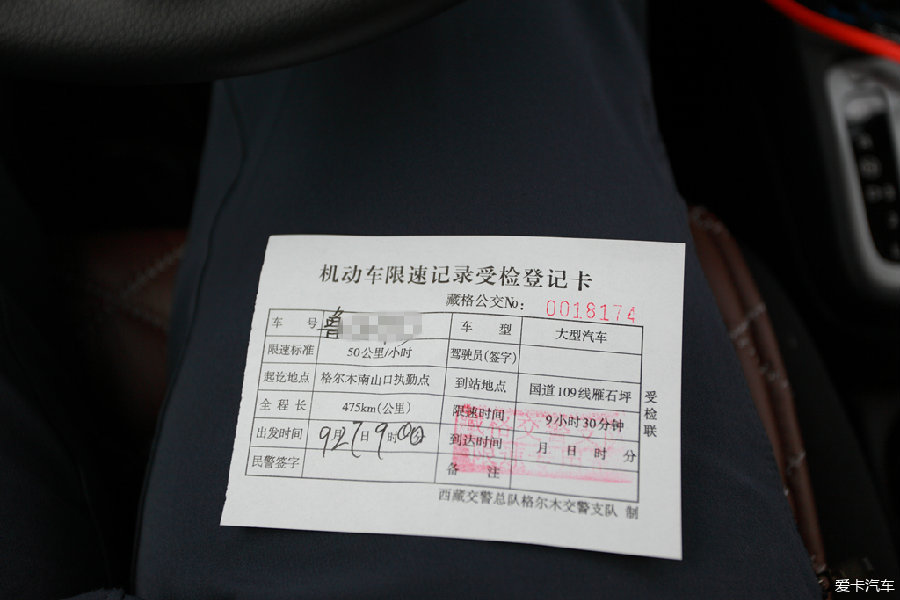 机动车限速记录受检登记卡
藏格公交No: 0018174
车 号 鲁 车 型 大型汽车
限速标准 50公里/小时 驾驶员(签字)
起讫地点 格尔木南山口执勤点 到站地点 国道109线雁石坪
全程长 475km(公里) 限速时间 9小时30分钟
出发时间 9月27日9时00分 到达时间 月 日 时 分
民警签字 备 注
受检联
西藏交警总队格尔木交警支队 制
爱卡汽车